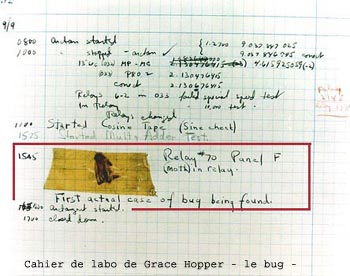 9/9
0800 Antan started
1000 " stopped - antan ✓ { 1.2700 9.037 847 025
9.037 846 995 correct
13"uc (032) MP-MC 2.130476415 (-3) 4.615925059(-2)
(033) PRO 2 2.130476415
correct 2.130676415
Relays 6-2 in 033 failed special speed test
In Relay 11.00 test.
Relays changed
1100 Started Cosine Tape (Sine check)
1525 Started Multy Adder Test.
1545 Relay #70 Panel F
(Moth) in relay.
First actual case of bug being found.
1630 antangent started.
1700 closed down.
Cahier de labo de Grace Hopper - le bug -